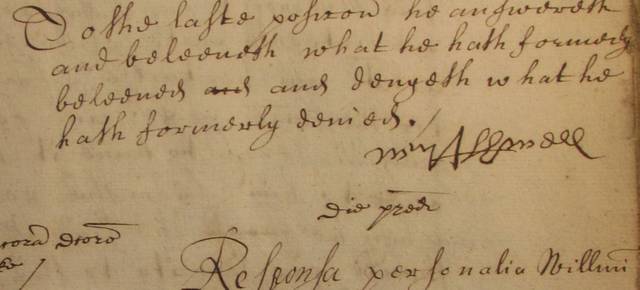 To the laste posicon he answereth
and beleeveth what he hath formerly
beleeved and and denyeth what he
hath formerly denied./
Wm Ashwell
Die pred
Responsa personalia Willmi